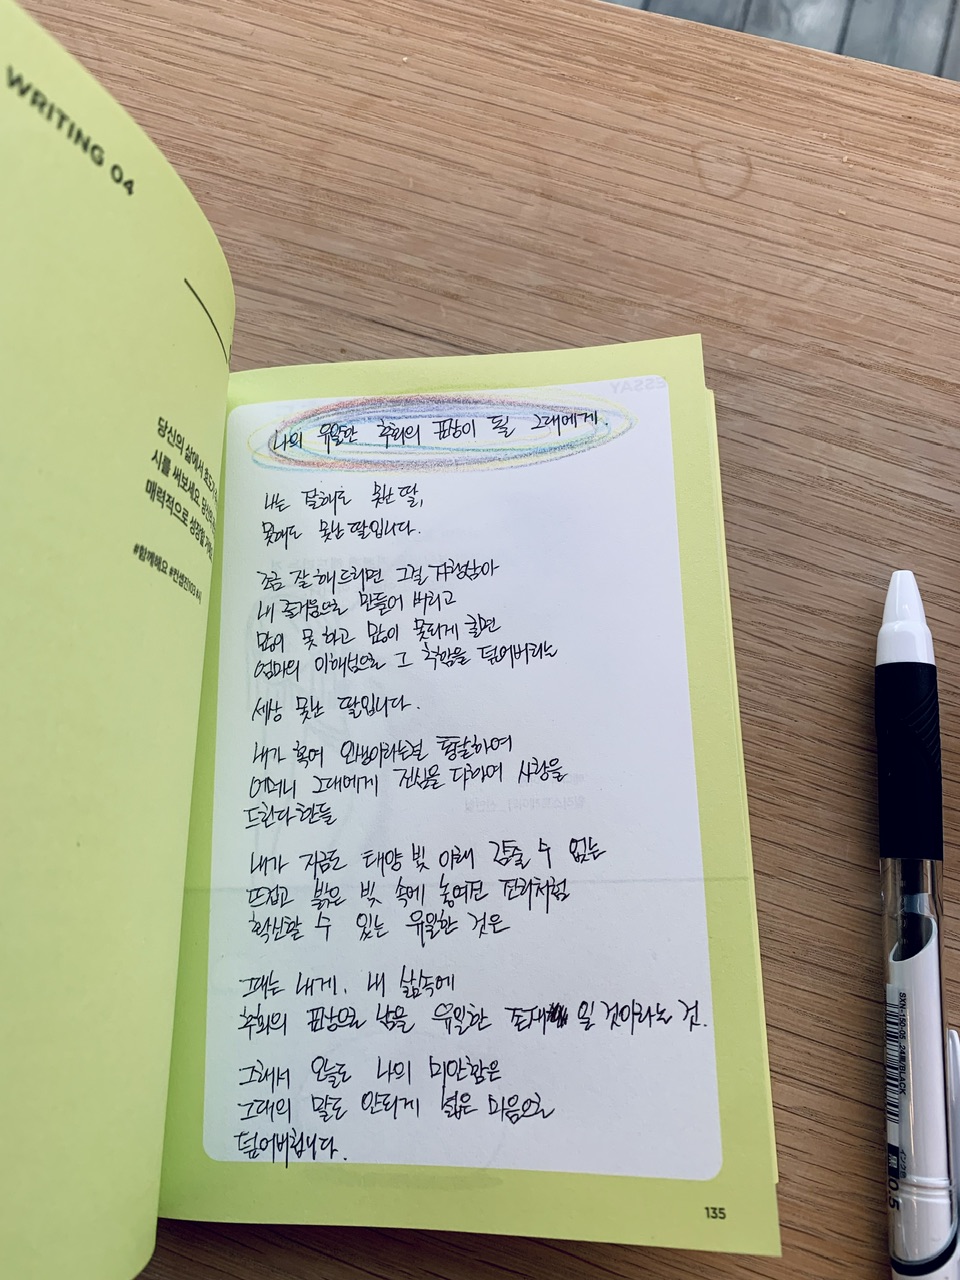 WRITING 04
당신의 삶에서
시를 써보세요. 당신의
매력적으로 성장할
#함께해요 #컨셉진103 #시
ESSAY
나의 유일한 후회의 표상이 될 그대에게.
나는 잘해도 못난 딸,
못해도 못난 딸입니다.
조금 잘 해드리면 그걸 자청삼아
내 즐거움으로 만들어 버리고
많이 못 하고 많이 못되게 굴면
엄마의 이해심으로 그 착함을 덮어버리는
세상 못난 딸입니다.
내가 혹여 인생이라는걸 통달하여
어머니 그대에게 진심을 다하여 사랑을
드린다 한들
내가 지금도 태양 빛 아래 감출 수 없는
뜨겁고 붉은 빛 속에 놓여진 진리처럼
확신할 수 있는 유일한 것은
그대는 내게, 내 삶속에
후회의 표상으로 남을 유일한 존재 일 것이라는 것.
그래서 오늘도 나의 미안함은
그대의 말도 안되게 넓은 마음으로
덮어버립니다.
135
SXN-150-05 BLACK
0.5